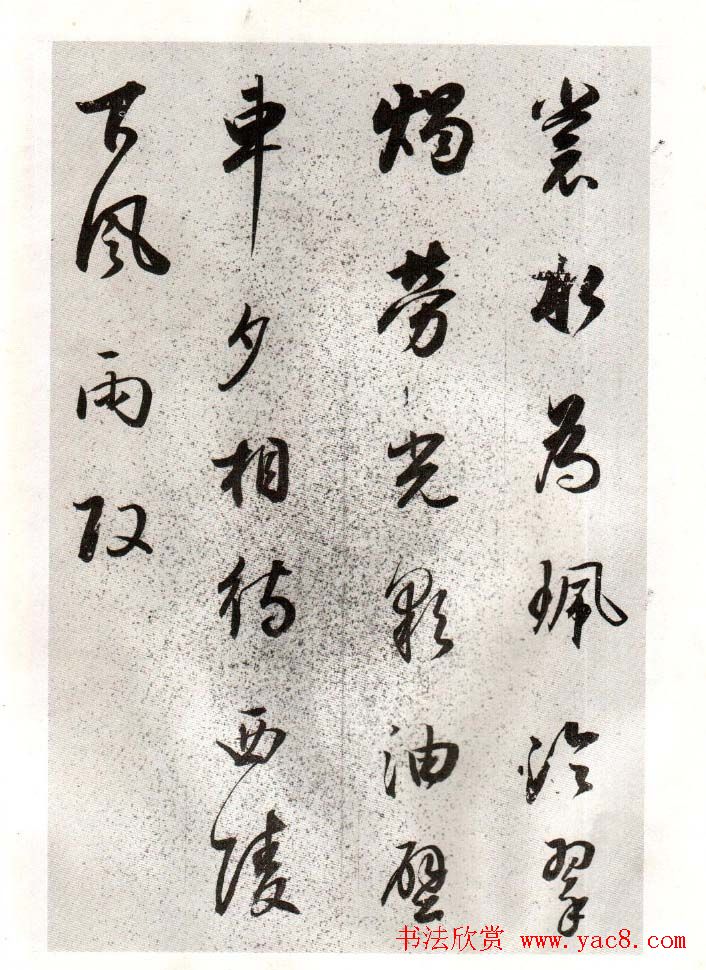 裳水為珮冷翠
燭勞光彩油壁
車夕相待西陵
下風雨吹
书法欣赏 www.yac8.com